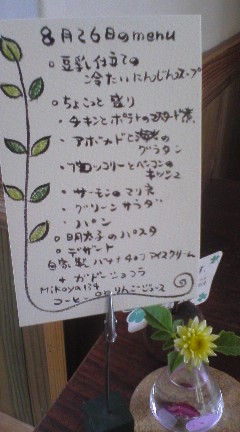 8月26日のmenu
○豆乳仕立ての
冷たいにんじんスープ
○ちょこっと盛り
・チキンとポテトのマスタード煮
・アボカドと海老の
グラタン
・ブロッコリーとベーコンの
キッシュ
・サーモンのマリネ
・グリーンサラダ
・パン
○明太子のパスタ
○デザート
自家製バナナチョコアイスクリーム
+ガトーショコラ
コーヒー orりんごジュース